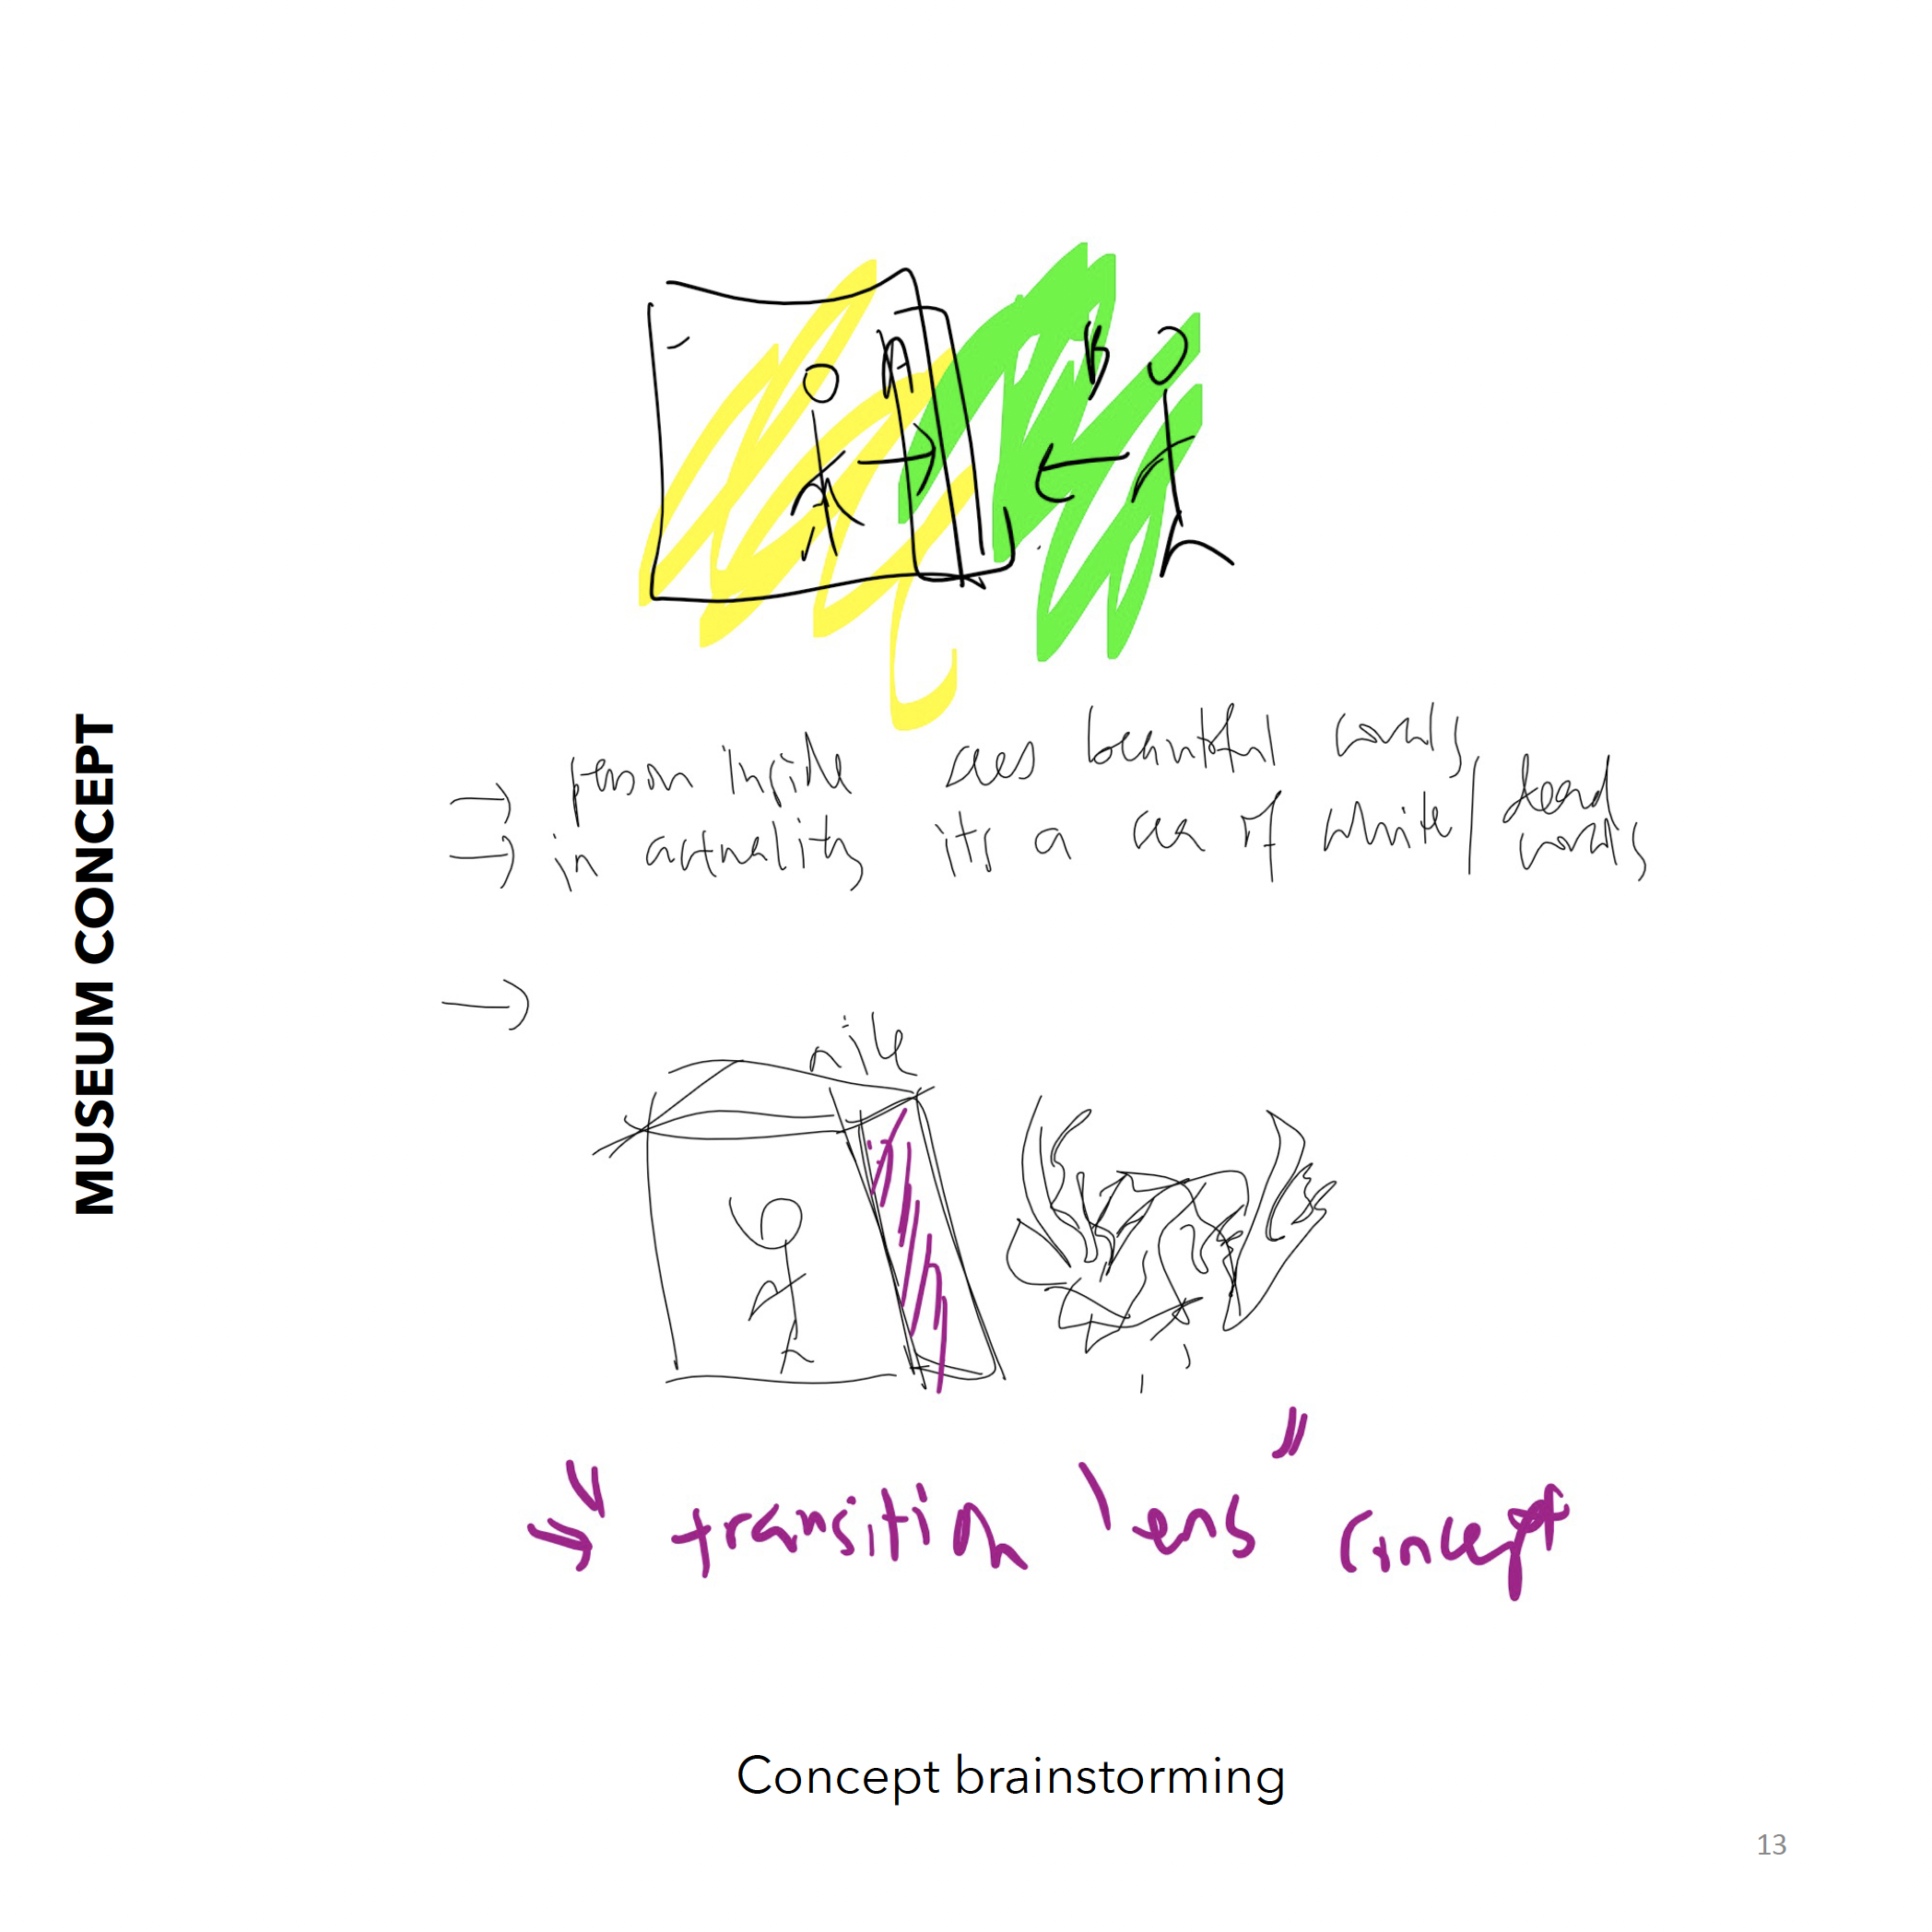 MUSEUM CONCEPT
A
B
→ person inside sees beautiful corals
→ in actuality it's a sea of white / dead corals
→
transition lens" concept
Concept brainstorming
13